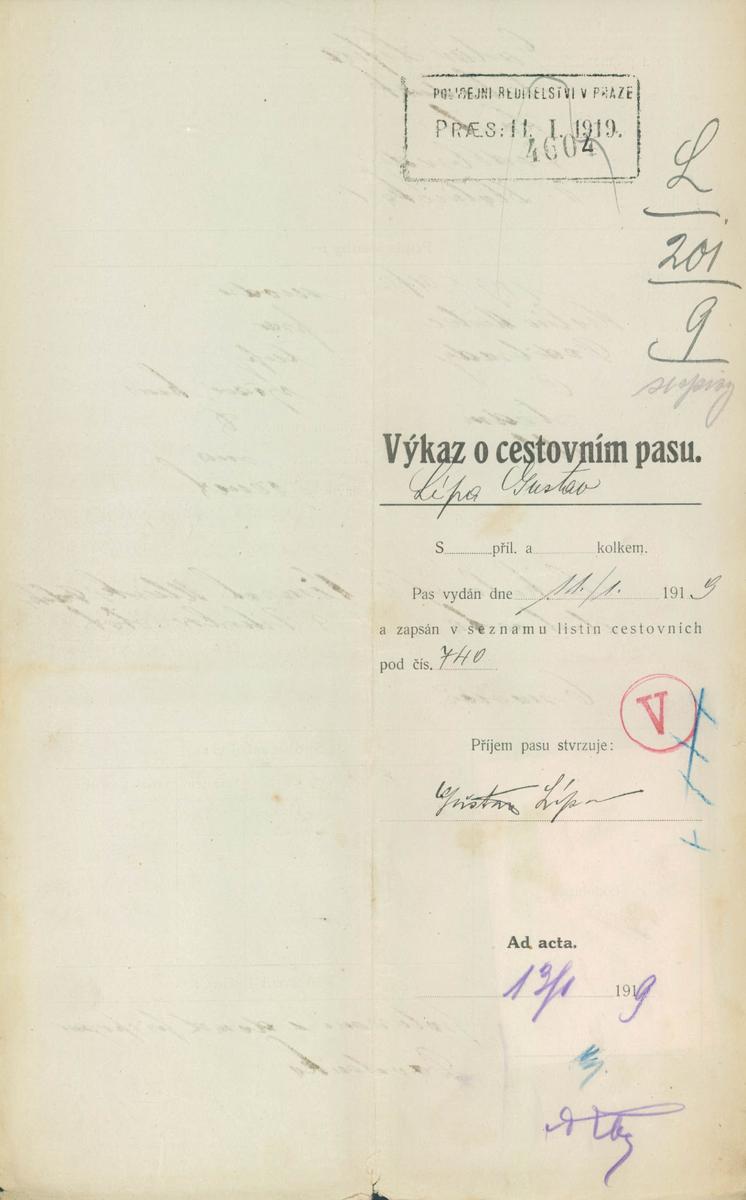 POLICEJNÍ ŘEDITELSTVÍ V PRAZE
PRÆS: 11. I. 1919.
4604
L
201
9
Výkaz o cestovním pasu.
Lípa Gustav
S příl. a kolkem.
Pas vydán dne 11./1. 1919
a zapsán v seznamu listin cestovních
pod čís. 740
V
Příjem pasu stvrzuje:
Gustav Lípa
Ad acta.
13/1 1919